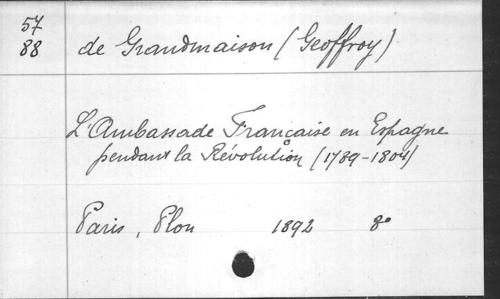 57
88
de Grandmaison (Geoffroy)
L'Ambassade Française en Espagne
pendant la Révolution (1789-1804)
Paris, Plon 1892 8°